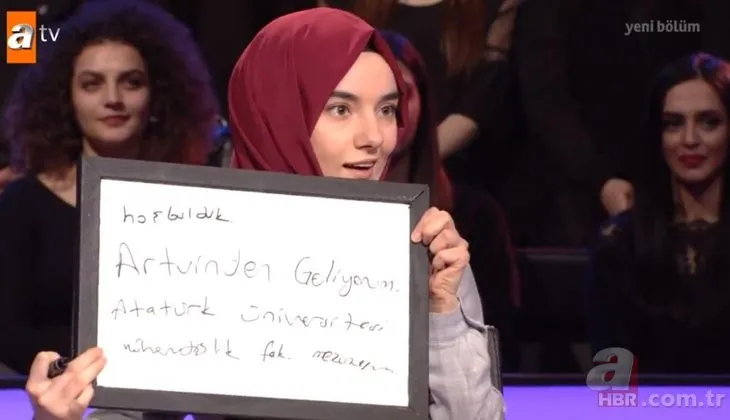 a tv
yeni bölüm
hoşbulduk
Artvinden Geliyorum.
Atatürk üniversitesi
mühendislik fak. mezunuyum
a
HBR.com.tr